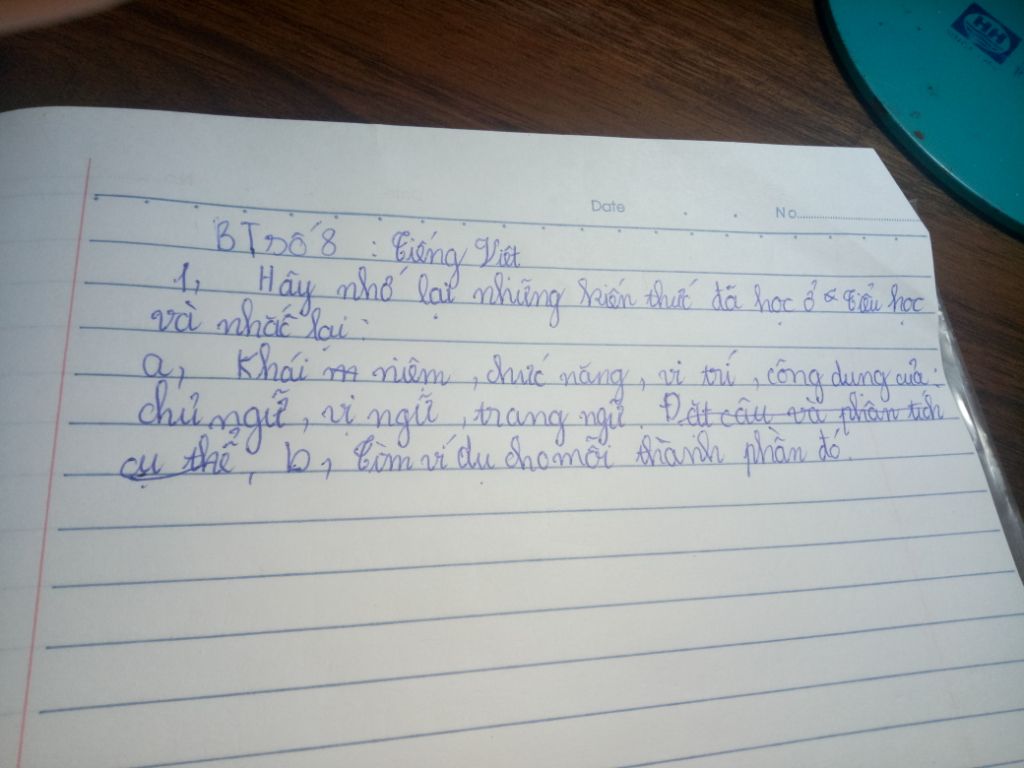 HH
Date No
BT SỐ 8 : Tiếng Việt
1, Hãy nhớ lại những kiến thức đã học ở Tiểu học
và nhắc lại :
a, Khái niệm , chức năng , vị trí , công dụng của :
chủ ngữ , vị ngữ , trạng ngữ . Đặt câu và phân tích
cụ thể , b , Tìm ví dụ cho mỗi thành phần đó .